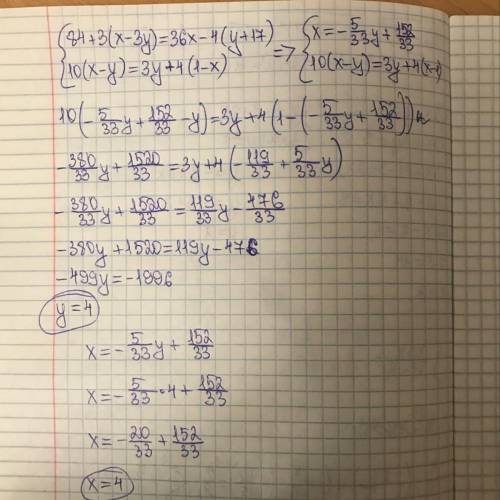 {84+3(x-3y)=36x-4(y+17) => {x=-5/33y+152/33
{10(x-y)=3y+4(1-x) {10(x-y)=3y+4(x-1)
10(-5/33y+152/33-y)=3y+4(1-(-5/33y+152/33))
-380/33y+1520/33=3y+4(-119/33+5/33y)
-380/33y+1520/33=119/33y-476/33
-380y+1520=119y-476
-499y=-1996
y=4
x=-5/33y+152/33
x=-5/33·4+152/33
x=-20/33+152/33
x=4